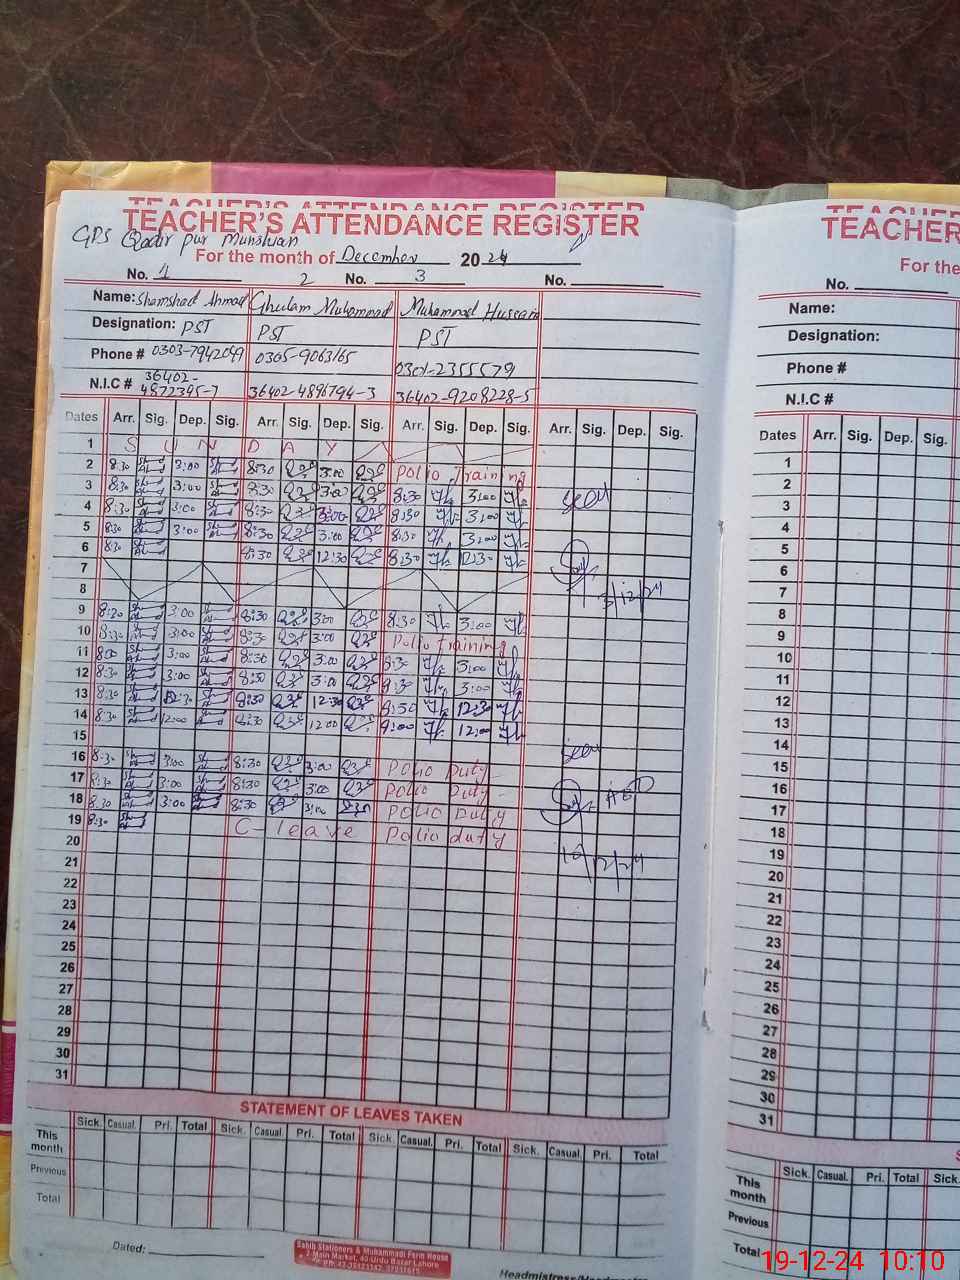 TEACHER'S ATTENDANCE REGISTER
TEACHER'S ATTENDANCE REGISTER
GPS Qadir pur Munshian
For the month of December 2024
No. 1 2 No. 3 No.
Name: Shamshad Ahmad Ghulam Muhammad Muhammad Hussain
Designation: PST PST PST
Phone # 0303-7942099 0305-9063165 0301-2355579
N.I.C # 36402-4872395-7 36402-4896794-3 36402-9208228-5
Dates Arr. Sig. Dep. Sig. Arr. Sig. Dep. Sig. Arr. Sig. Dep. Sig. Arr. Sig. Dep. Sig.
1 S U N D A Y
2 8:30 3:00 8:30 3:00 Polio Training
3 8:30 3:00 8:30 3:00 8:30 3:00 Seen
4 8:30 3:00 8:30 3:00 8:30 3:00
5 8:30 3:00 8:30 3:00 8:30 3:00
6 8:30 8:30 12:30 8:30 12:30
7 3/12/24
8
9 8:30 3:00 8:30 3:00 8:30 3:00
10 8:30 3:00 8:30 3:00 Polio Training
11 8:00 3:00 8:30 3:00 8:30 3:00
12 8:30 3:00 8:30 3:00 8:30 3:00
13 8:30 12:30 8:30 12:30 8:30 12:30
14 8:30 12:00 8:30 12:00 9:00 12:00
15 Seen
16 8:30 3:00 8:30 3:00 Polio Duty
17 8:30 3:00 8:30 3:00 Polio Duty AEO
18 8:30 3:00 8:30 3:00 Polio Duty
19 8:30 C-leave Polio duty
20 12/24
21
22
23
24
25
26
27
28
29
30
31
STATEMENT OF LEAVES TAKEN
Sick. Casual. Pri. Total Sick. Casual. Pri. Total Sick. Casual. Pri. Total Sick. Casual. Pri. Total
This month
Previous
Total
Dated:
Sahib Stationers & Muhammadi Form House
2-Main Market, 40-Urdu Bazar Lahore
Headmistress/
TEACHER
For the
No.
Name:
Designation:
Phone #
N.I.C #
Dates Arr. Sig. Dep. Sig.
1
2
3
4
5
6
7
8
9
10
11
12
13
14
15
16
17
18
19
20
21
22
23
24
25
26
27
28
29
30
31
Sick. Casual. Pri. Total Sick.
This month
Previous
Total
19-12-24 10:10